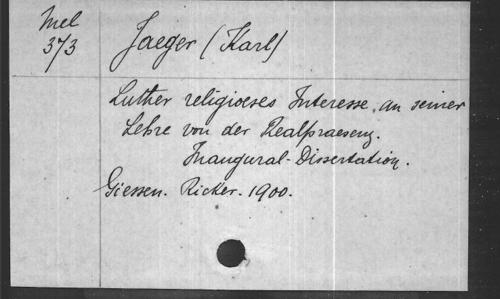 Mel
373
Jaeger (Karl)
Luther religioeses Interesse an seiner
Lehre von der Realpraesenz.
Inaugural-Dissertation.
Giessen. Ricker. 1900.